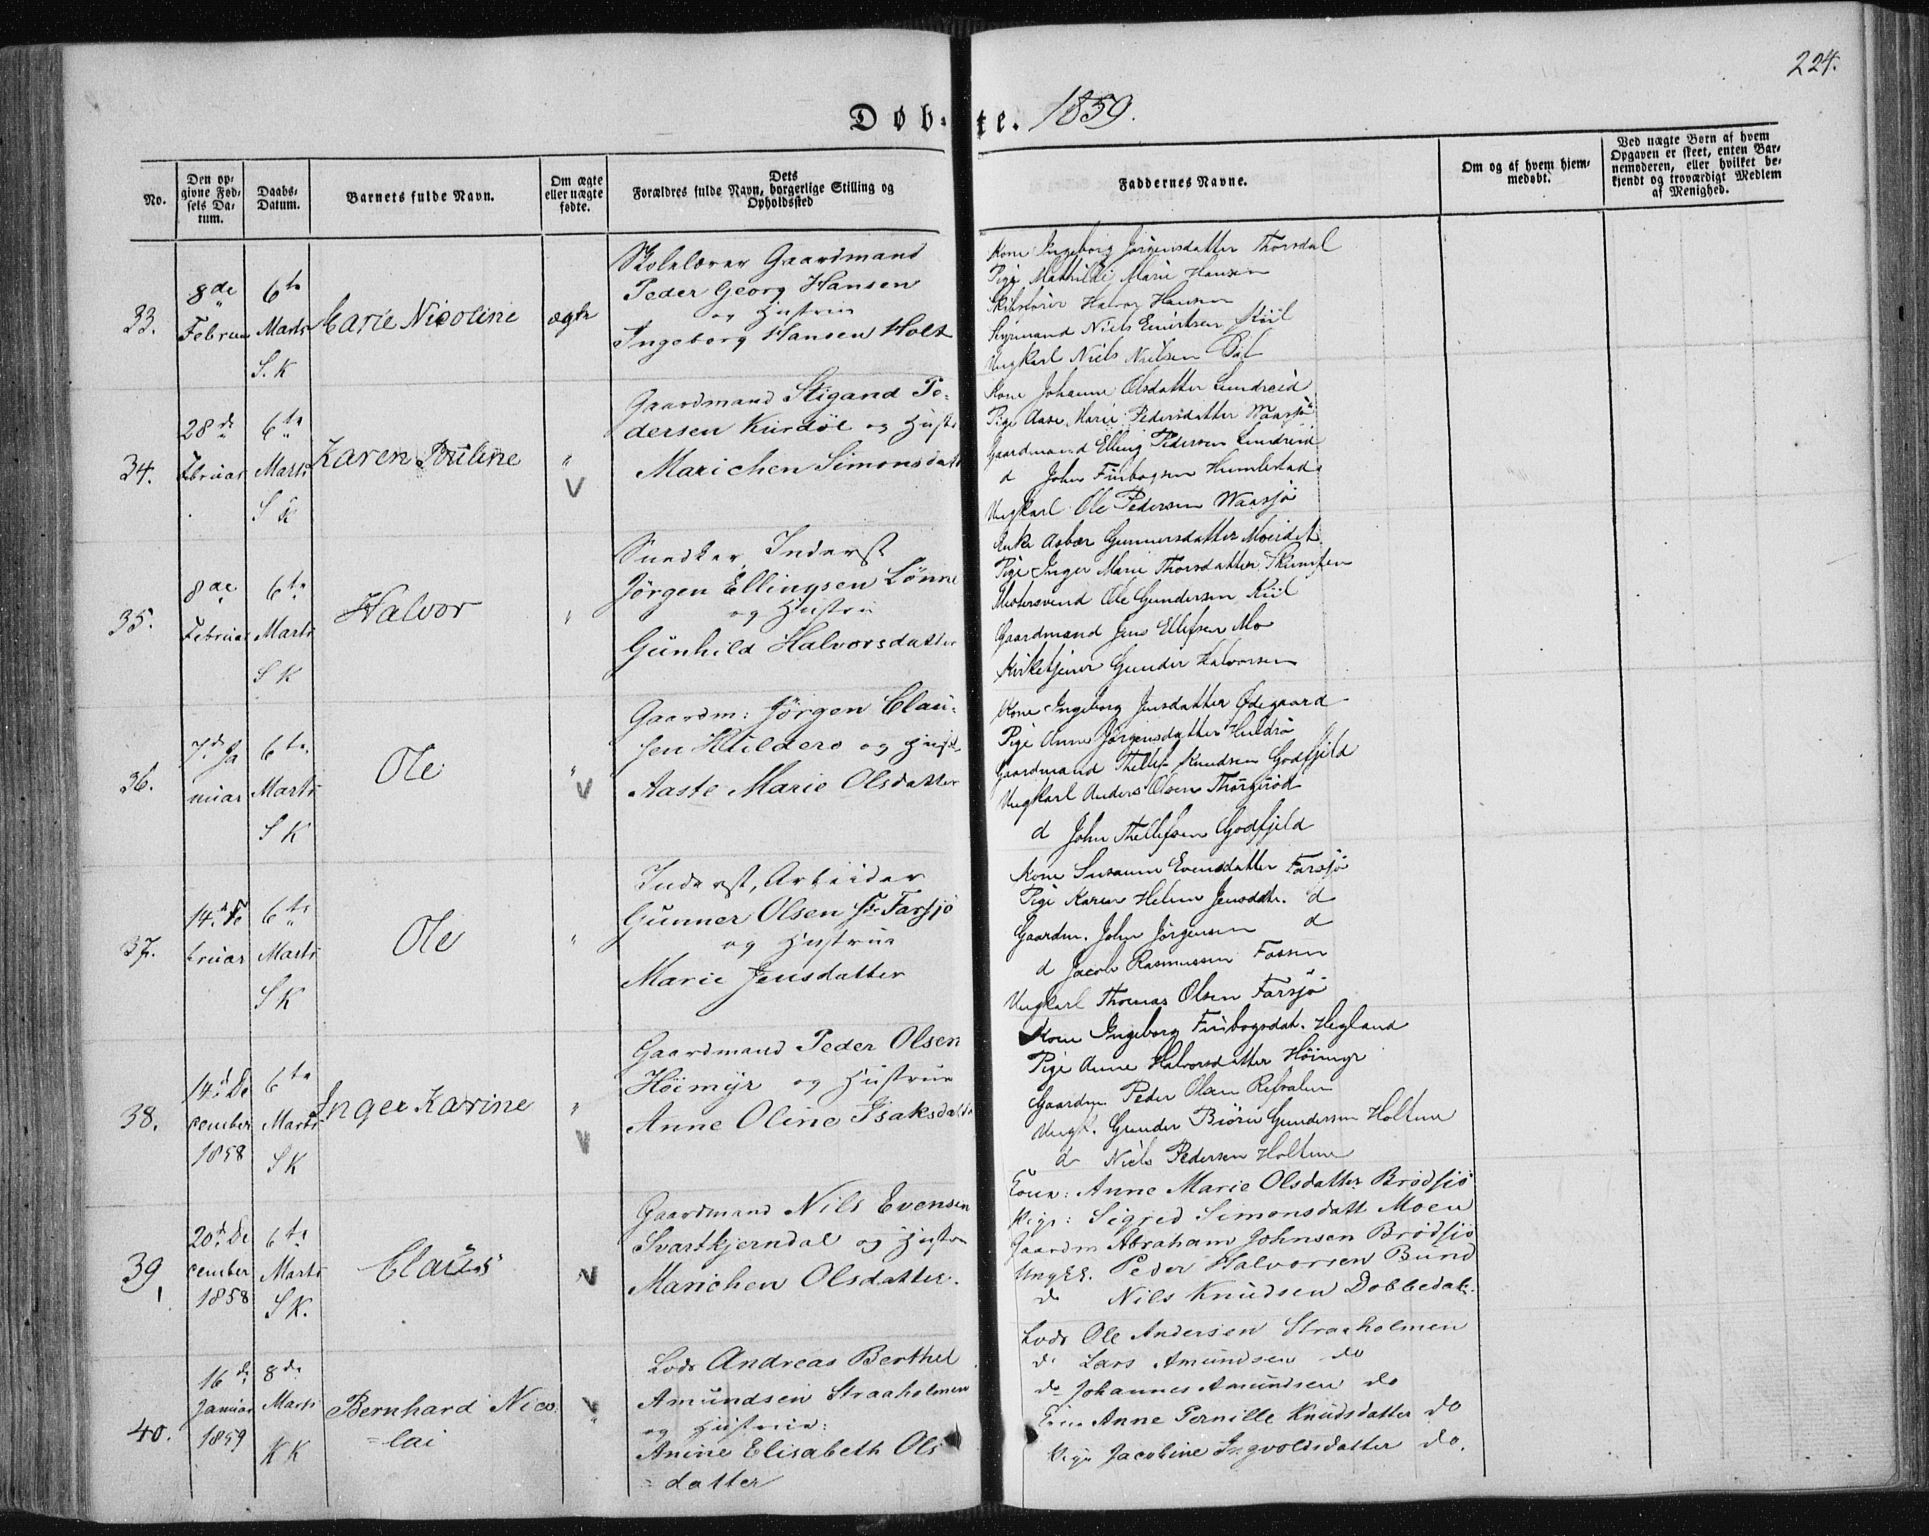 224.
Døbte. 1859.
No.
Den opgivne Fødsels Datum.
Daabs-Datum.
Barnets fulde Navn.
Om ægte eller uægte fødte.
Dets Forældres fulde Navn, borgerlige Stilling og Opholdssted
Faddernes Navne.
Om og af hvem hjemmedøbt.
Ved uægte Børn af hvem Opgaven er skeet, enten Barnemoderen, eller hvilket bekjendt og troværdigt Medlem af Menighed.
33.
8de
Februar
6te
Marts
S. K
Marie Nicoline
ægte
Skolelærer Gaardmand
Peder Georg Hansen
og Hustru
Ingeborg Hansen Holt
Kone Ingeborg Jørgensdatter Thorsdal
Pige Mathilde Marie Hansen
Halvor Hansen
Niels
Ungkarl Niels Nielsen
34.
28de
Februar
6te
Marts
S K
Karen Puline
"
Gaardmand Stigand Pe-
dersen Kurdøl og Hustr
Marichen Simonsdatt
Kone Johanne Olsdatter Lundreid
Pige Aase Marie Pedersdatter Waasjø
Gaardmand Elling Pedersen Lundreid
d John Finbogsen Humlestad
Ungkarl Ole Pedersen Waasjø
35.
8de
Februar
6te
Marts
S K
Halvor
"
Snedker, Inderst
Jørgen Ellingsen Lønne
og Hustru
Gunhild Halvorsdatter
Enke Asbør Gunnersdatter Moeidet
Pige Inger Marie Thorsdatter
Ole Gundersen Kiil
Gaardmand Jens Ellefsen Mo
Kirketjener Gunder Halvorsen
36.
7de Ja
nuar
6te
Marts
S K
Ole
"
Gaardm: Jørgen Clau-
sen Huldero og Hust
Aaste Marie Olsdatter
Kone Ingeborg Jensdatter Ødegaard
Pige Anne Jørgensdatter Huldrø
Gaardmand Thellef Knudsen Godfjeld
Ungkarl Anders Olsen Thorgirød
d John Thellefsen Godfjeld
37.
14de Fe
bruar
6te
Marts
S K
Ole
"
Inderst, Arbeider
Gunner Olsen Farsjø
og Hustrue
Marie Jensdatter
Kone Susanne Evensdatter Farsjø
Pige Karen Helene Jensdatr. d
Gaardm. John Jørgensen d
d Jacob Rasmussen Fossen
Ungkarl Thomas Olsen Farsjø
38.
14de De
cember
1858
6te
Marts
S K
Inger Karine
"
Gaardmand Peder Olsen
Höimyr og Hustrue
Anne Oline Isaksdatt
Kone Ingeborg Finbogsdat. Hegland
Pige Anne Halvorsdatter Höimyr
Gaardm Peder Olsen
Ungk. Gunder Biørn Gundersen Holtene
d Niels Pedersen Holtene
39,
20de De
cember
1858
6te
Marts
S K.
Claus
Gaardmand Nils Evensen
Svartkjerndal og Hustru
Marichen Olsdatter.
Kone: Anne Marie Olsdatter Brødsjø
Pige: Sigred Simonsdatt Moen
Gaardm Abraham Johnsen Brødsjø
Ungk. Peder Halvorsen Bund
d Nils Knudsen Dobbedal.
40.
16de
Januar
1859
8de
Marts
K K
Bernhard Nico-
lai
Lods Andreas Berthel
Amundsen Straaholmen
og Hustrue:
Anine Elisabeth Ols
datter
Lods Ole Andersen Straaholmen
do Lars Amundsen do
do Johannes Amundsen do
Kone Anne Pernille Knudsdatter do
Pige Jacobine Ingvoldsdatter do.